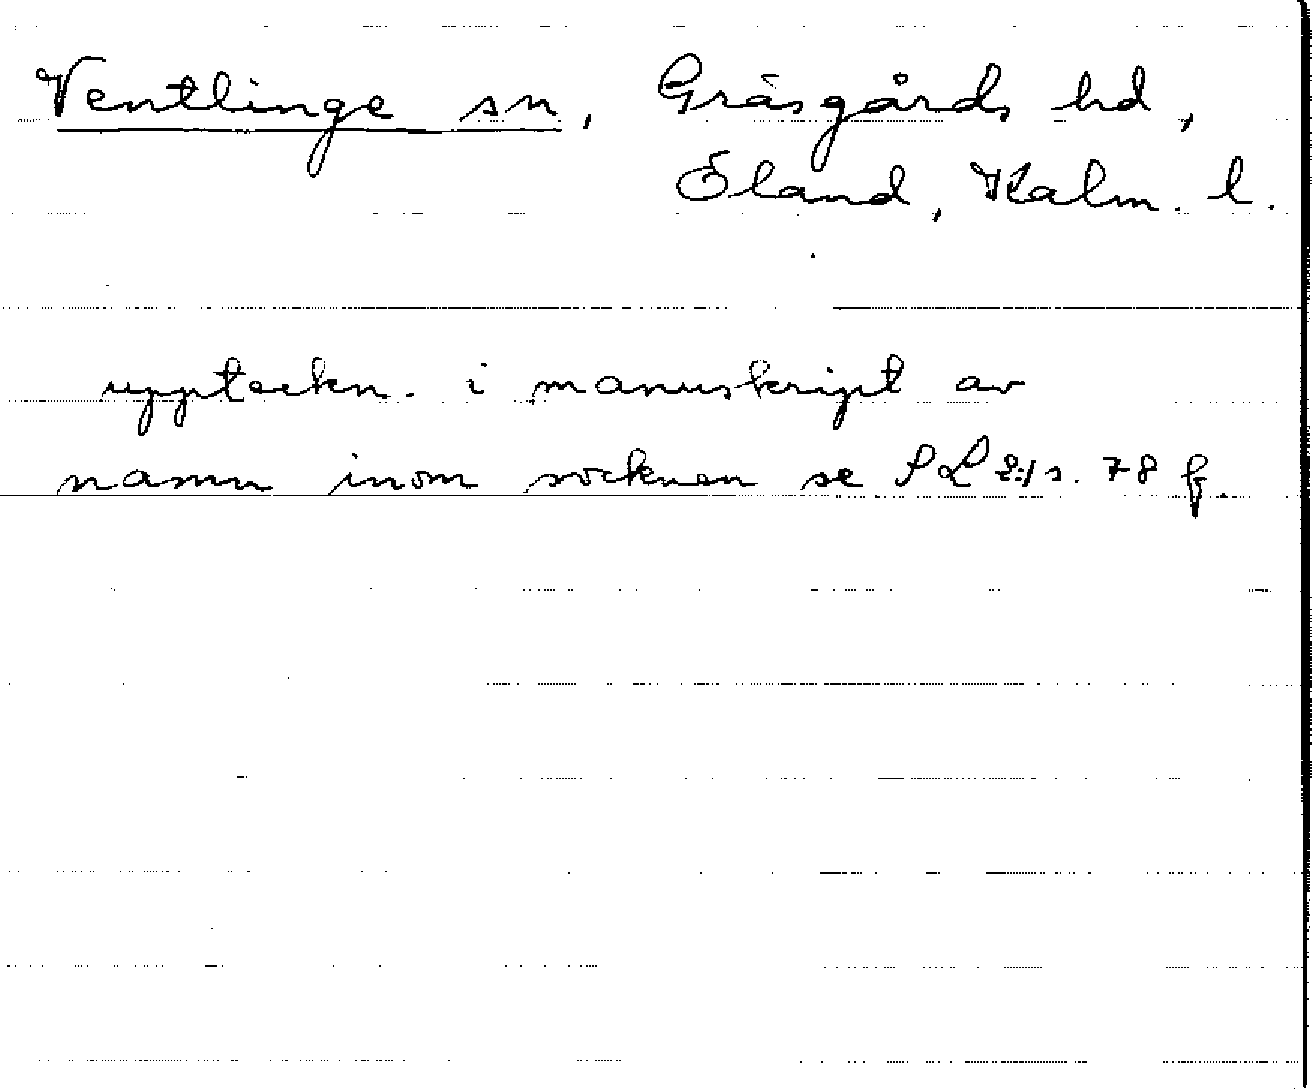 Ventlinge sn, Gräsgårds hd,
Öland, Kalm. l.
uppteckn. i manuskript av
namn inom socknen se SL 2:1 s. 78 f.